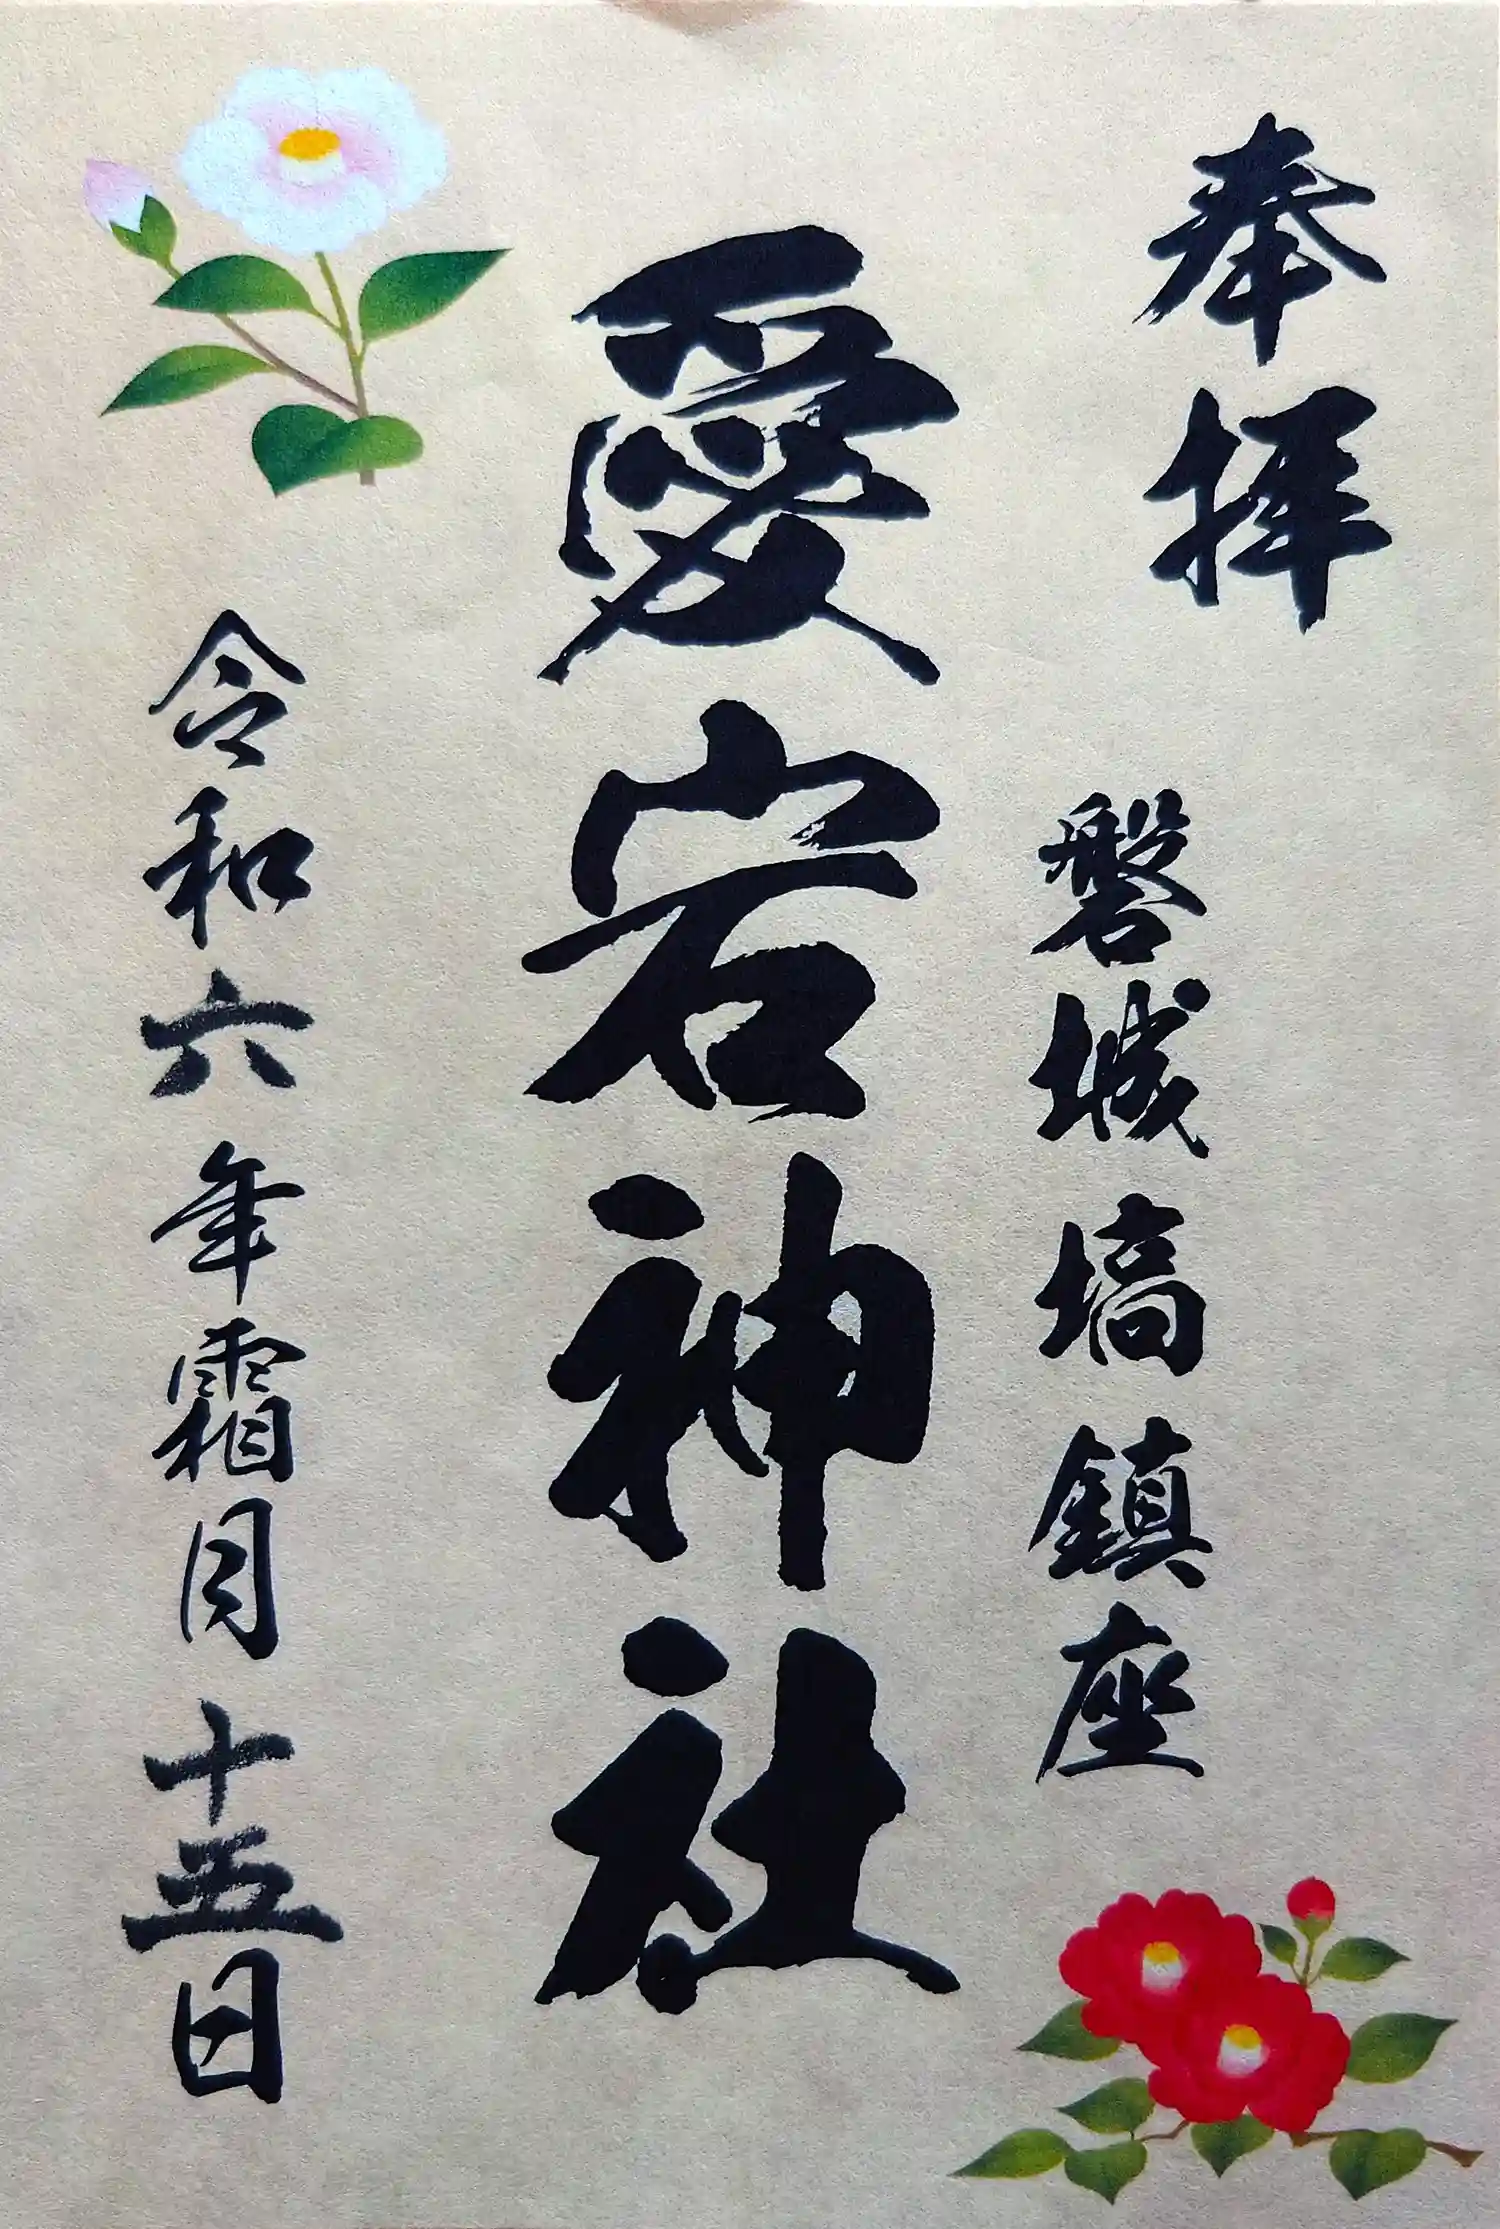 奉拝
磐城塙鎮座
愛宕神社
令和六年霜月十五日